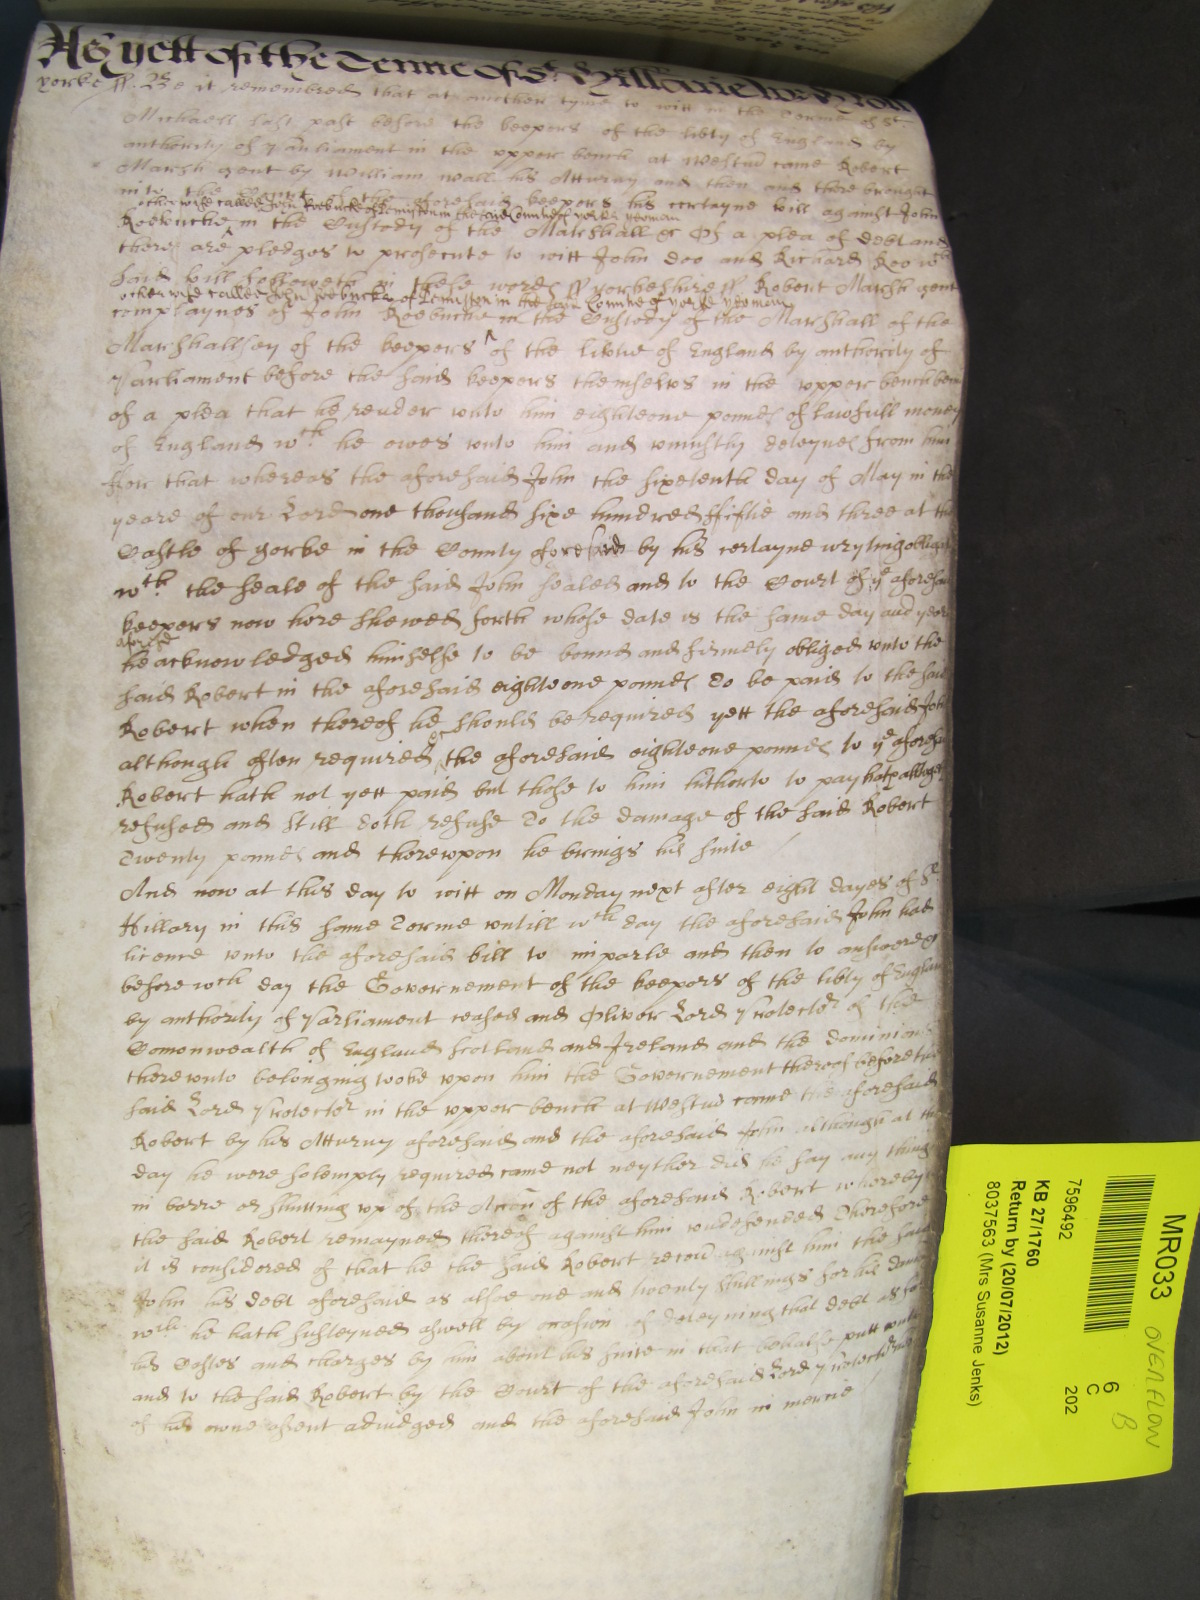 As yett of the Terme of St. Hillarie
yorke ss. Be it remembred that at another tyme to witt in the Terme of St
Michaell last past before the keepers of the libty of England by
authority of Parliament in the upper bench at Westm came Robert
Marsh gent by William Wall his Atturny and then and there brought
into the Court of the aforesaid keepers his certayne bill against John
otherwise called John Roebucke of Lemiston in the said Countie of yorke yeoman
Roebucke in the Custody of the Marshall &c Of a plea of debt and
there are pledges to prosecute to witt John Doo and Richard Roo wch
said bill followeth in these words ss yorkeshire ss Robert Marsh gent
otherwise called John Roebucke of Lemiston in the said Countie of yorke yeoman
complaynes of John Roebucke in the Custody of the Marshall of the
Marshallsey of the keepers of the libtie of England by authority of
Parliament before the said keepers themselves in the upper bench
of a plea that he render unto him eighteene pounds of lawfull money
of England wch he owes unto him and uniustly deteynes from him
ffor that whereas the aforesaid John the sixetenth day of May in the
yeare of our Lord one thousand sixe hundred ffiftie and three at the
Castle of yorke in the County aforesaid by his certayne wryting
wth the seale of the said John sealed and to the Court of ye
keepers now here shewed forth whose date is the same day and yeare
aforesd
he acknowledged himselfe to be bound and firmely obliged unto the
said Robert in the aforesaid eighteene pounds To be paid to the said
Robert when thereof he should be required yett the aforesaid John
although often required the aforesaid eighteene pounds to ye
Robert hath not yett paid but those to him hitherto to pay
refused and still doth refuse To the damage of the said Robert
Twenty pounds and thereupon he brings his suite
And now at this day to witt on Monday next after eight dayes of St
Hillary in this same Terme untill wch day the aforesaid John had
licence unto the aforesaid bill to imparle and then to answere &c
before wch day the Governement of the keepers of the libty of England
by authority of Parliament ceased and Oliver Lord Protector of the
Comonwealth of England Scotland and Ireland and the dominions
thereunto belonging tooke upon him the Governement thereof before the
said Lord Protector in the upper bench at Westm came the aforesaid
Robert by his Atturny aforesaid and the aforesaid John although at that
day he were solemply required came not neyther did he say any thing
in barre or shutting up of the Accon of the aforesaid Robert whereby
the said Robert remayned thereof against him undefended Therefore
it is considered of that he the said Robert recover against him the said
John his debt aforesaid as alsoe one and twenty shillings for his
wch he hath susteyned aswell by occasion of deteyning that debt as for
his Costes and charges by him about his suite in that behalfe putt unto
and to the said Robert by the Court of the aforesaid Lord Protector
of his owne assent adiudged and the aforesaid John in mercie
MR033
OVERFLOW
6
C
202
B
7596492
KB 27/1760
Return by (20/07/2012)
8037563 (Mrs Susanne Jenks)